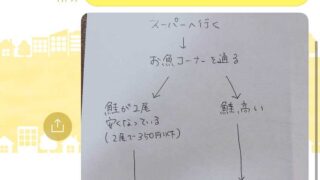 スーパーへ行く
↓
お魚コーナーを通る
鮭が2尾
安くなっている
(2尾で350円以下)
鮭、高い